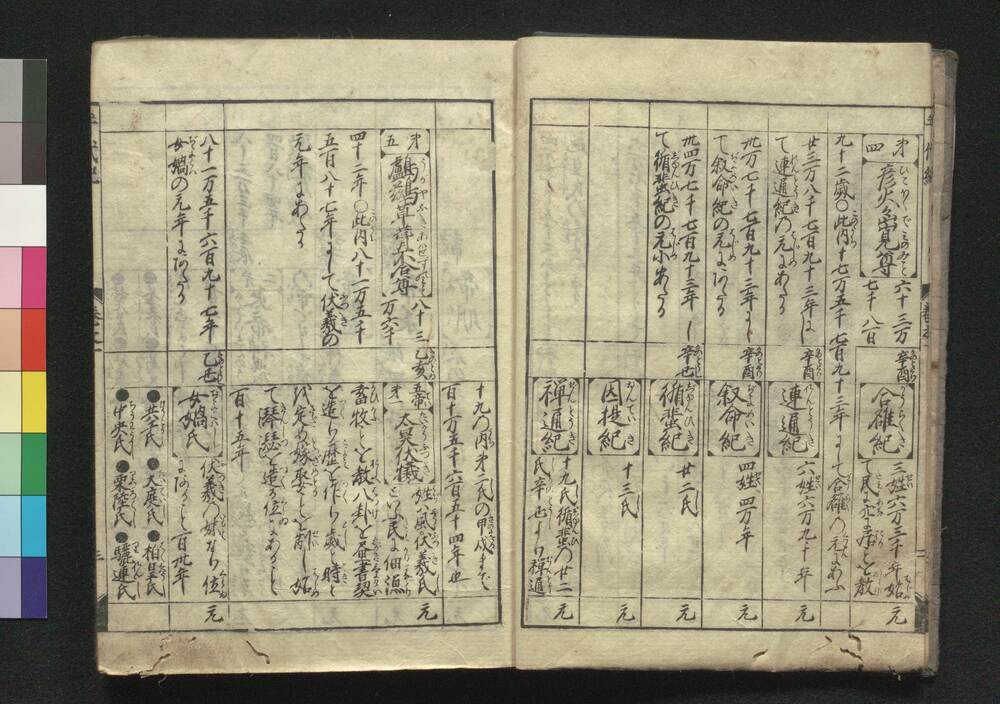 第四
彦火々出見尊
六十三万
七千八百
九十二歳〇此内十七万五千七百九十三年にして合雒の元にあふ
廿三万八千七百九十三年に
て連通紀の元にあたる
卅一万七千七百九十三年にし
て叙命紀の元にあたる
卅四万七千七百九十三年に
て循蜚紀の元にあたる
辛酉
合雒紀
三姓六万三千年始
て民に穴居を教
元
辛酉
連通紀
六姓六万九十年
元
辛酉
叙命紀
四姓四万年
元
辛巳
循蜚紀
廿二氏
元
因提紀
十三氏
元
禅通紀
十九氏循蜚の廿二
氏辛巳より禅通
元
第五
鸕鶿草葺不合尊
八十三
万六千
四十二年〇此内八十一万五千
五百八十七年にして伏羲の
元年にあたる
八十一万五千六百九十七年
女媧の元年にあたる
十九の内第二氏の甲戌まで
百十万五千六百五十四年也
乙亥
五帝
第一
太昊伏犧
姓ハ風伏羲氏
といふ民に佃漁
畜牧を教八卦を画書契
を造り暦を作り歳時を
代定め嫁娶を制し始
て琴瑟を造る位にあること
百十五年
元
女媧氏
伏羲の妹なり位
にあること百卅年
元
●共工氏 ●大庭氏 ●柏皇氏
●中央氏 ●東陸氏 ●驪連氏